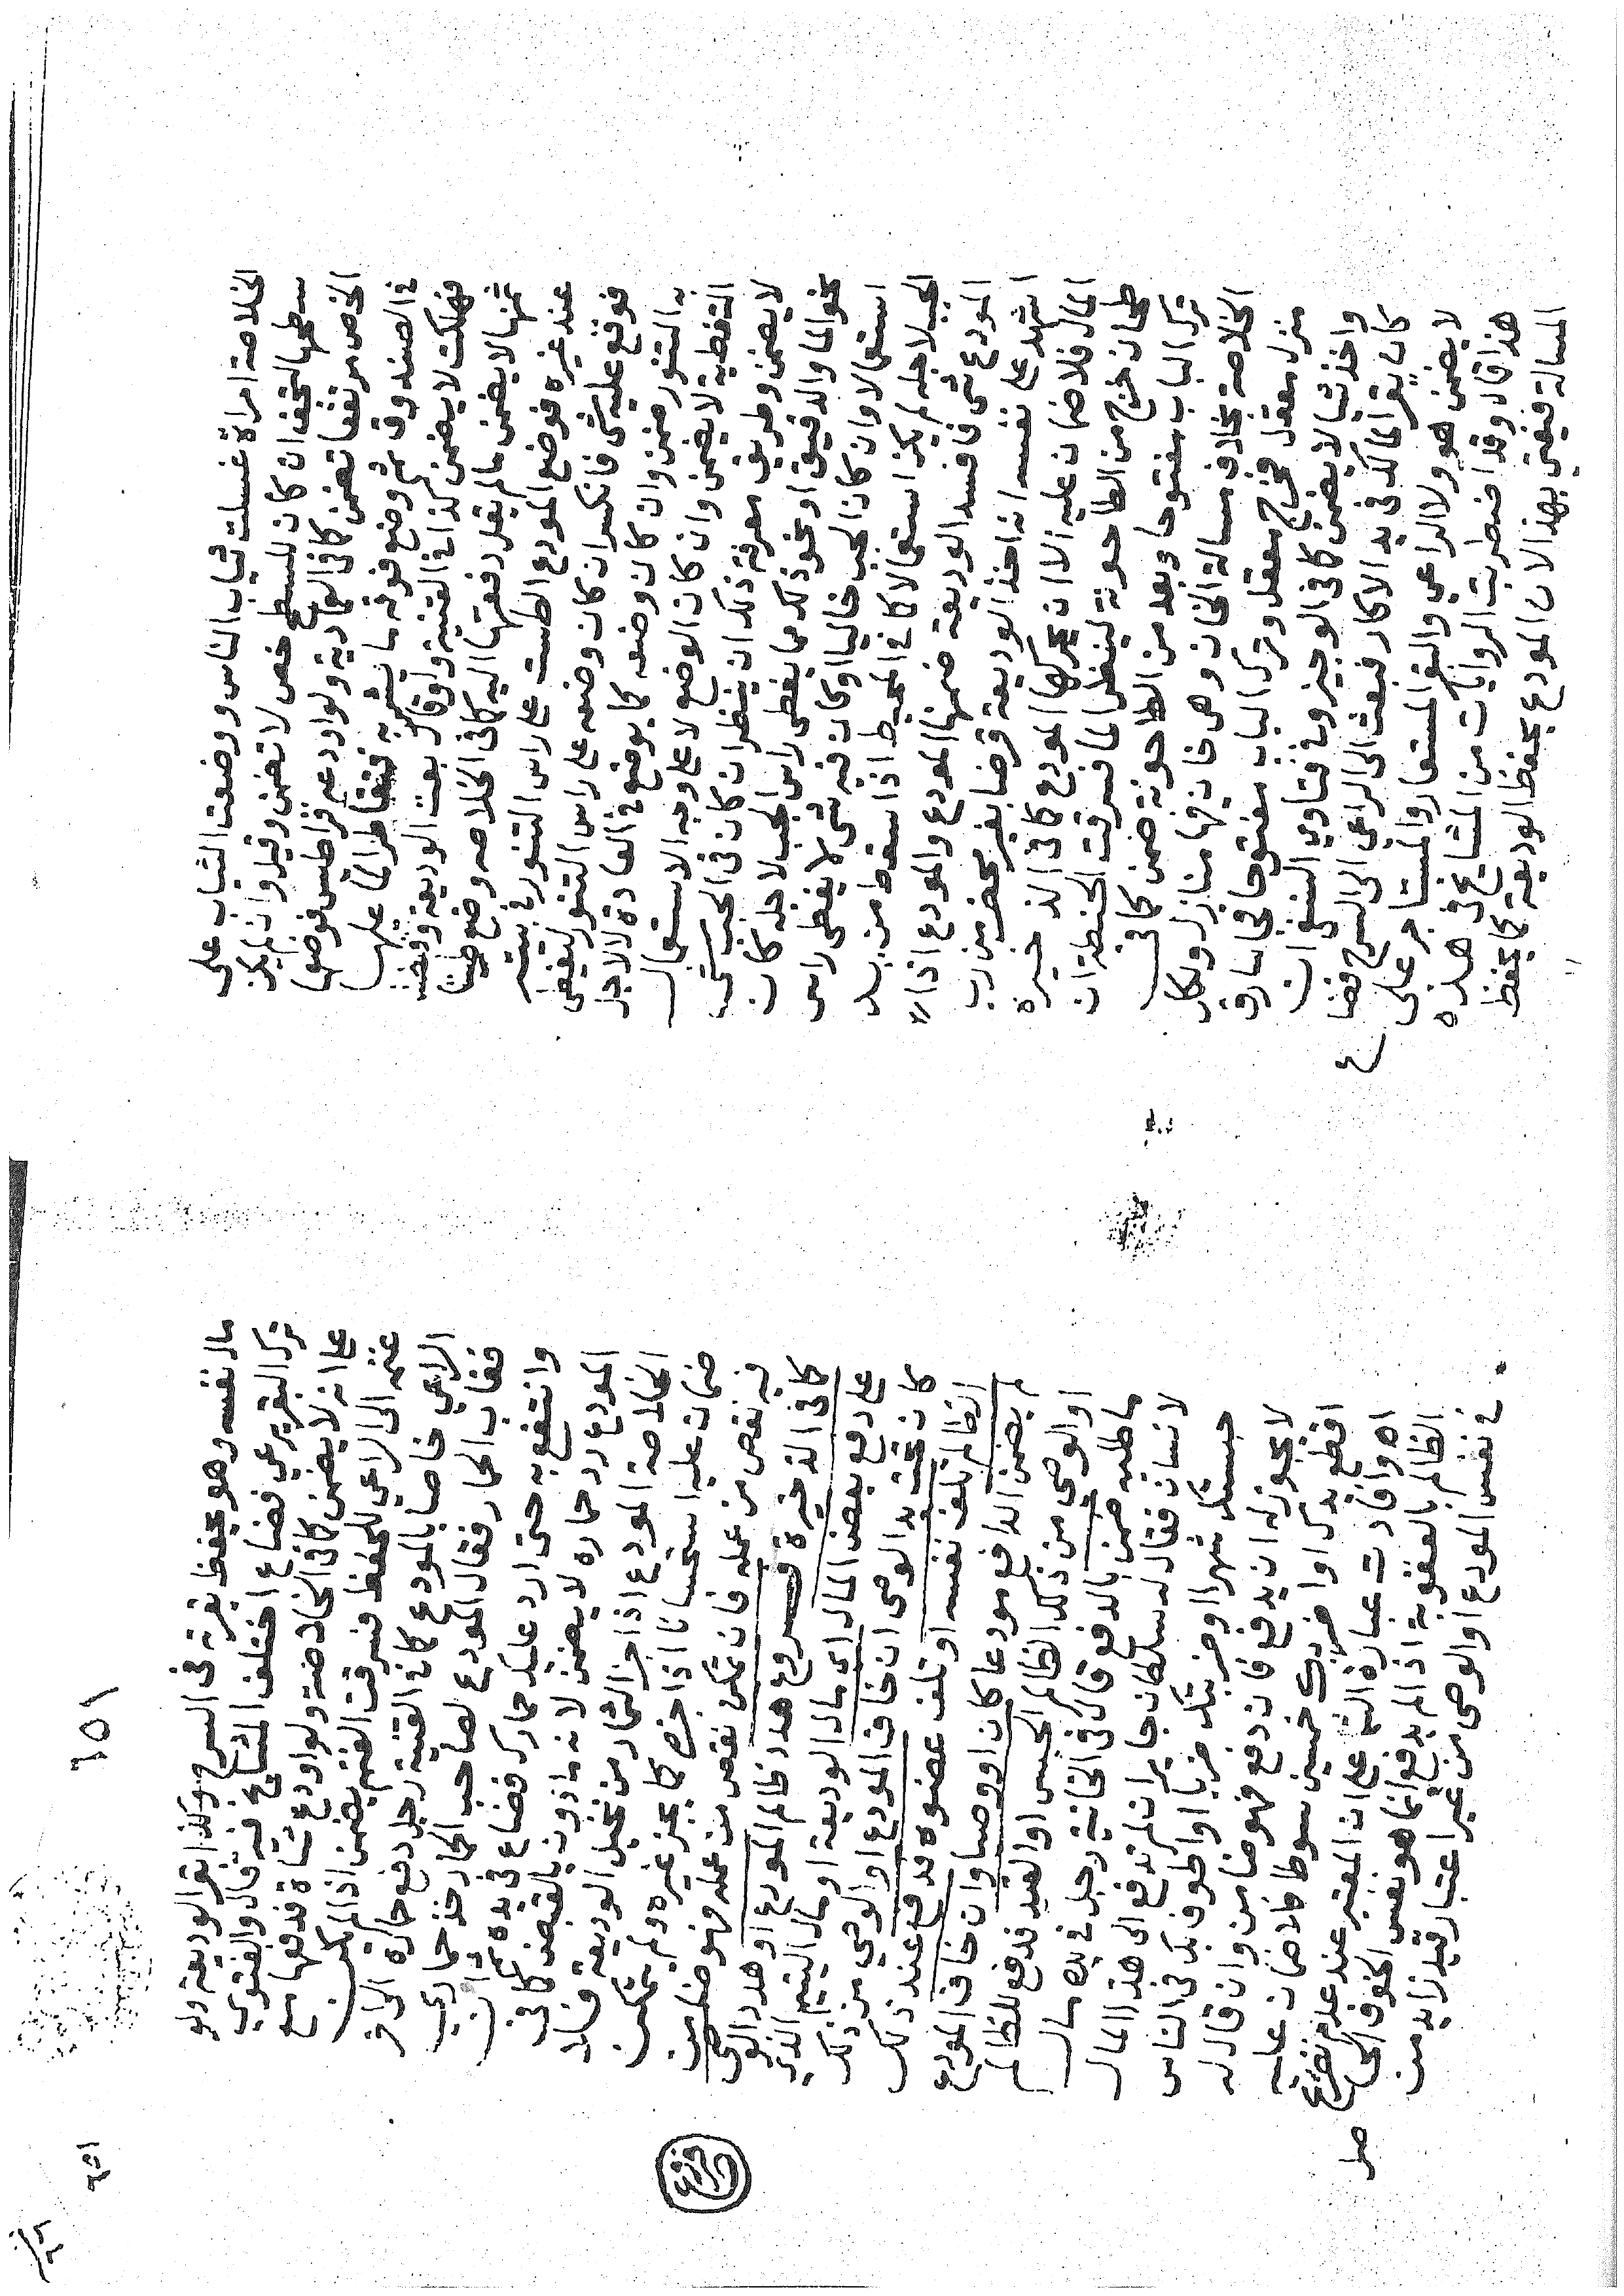 الخلاصة امراة غسلت ثياب الناس ووضعت الثياب على
سطحها لتجف ان كان للسطح خص لا تضمن وقيل وان لم يكن
الخص مرتفعا تضمن كما في العمادية ولو اودعه قراطيس فوضعها
في الصندوق ثم وضع فوقه ما يشربه فتقاطر الماء عليها
فهلكت لا يضمن كذا في القنية ولو قال بعت الوديعة وقبضت
ثمنها لا يضمن ما لم يقل دفعتها اليه كما في الخلاصه وضع طستا
عند غيره فوضع المودع الطست على راس التنور في بيته
فوقع عليه شى فانكسر ان كان وضعه على راس التنور ليغطى
به التنور ضمن وان كان وضعه كما يوضع في العادة لا لاجل
التغطية لا يضمن وان كان الوضع لا على وجه الاستعمال
لا يضمن وطريق معرفة ذلك ان ينظر ان كان في الجب شى
نحو الما والدقيق او نحو ذلك مما يغطى راس الجب لاجله كان
استعمالا وان كان الجب خاليا او كان فيه شى لا يغطى راس
الجب لاجله لم يكن استعمالا كما في المحيط اذا سقط من يد
المودع شى فافسد الوديعة ضمنها المودع والمودع اذا
اشهد على نفسه انه اخذ الوديعة قرضا بغير محضر من رب
المال فلا ضمان عليه الا ان يحركها المودع كما في الذخيرة
طحان خرج من الطاحونة لينظر الما فسرقت الحنطة ان
ترك الباب مفتوحا وبعد من الطاحونة ضمن كما في
الخلاصة بخلاف مسالة الخان وهى خان فيها منازل ولكل
منزل مقفل فخرج مقفل وترك الباب مفتوحا فجا سارق
واخذ شيا لا يضمن كما في الوجيز وفي فتاوي النسفى ان
كان بقر المالك في يد الاكار فبعث الى الراعى الى السرح فضا ع
لا يضمن هو ولا الراعي والبقر المستعار والمستاجر على
هذا قال وقد اضطربت الروايات من المشايخ في هذه
المسالة فيفتى بهذا لان المودع يحفظ الوديعة كما يحفظ
٦٥١
١٥٦
مال نفسه وهو يحفظ بقرته في السرح وكذا بقر الوديعة ولو
ترك البقر يرعي فضاع اختلف المشايخ فيه قال والفتوي
على انه لا يضمن كما في الخلاصة ولو اودع شاة فدفعها مع
غنمه الى الراعي للحفظ فسرقت الغنم يضمن اذا لم يكن
الراعي خاصا بالمودع كما في القنية رجل دفع حماره الى اخر
فغاب الحمار فقال المودع لصاحب الحمار خذ حماري
وانتفع به حتى ارد عليك حمارك فضاع في يده ثم ان
المودع رد حماره لا يضمن لانه ماذون بالقبض كما في
الخلاصة المودع اذا جز الثمار من نخيل الوديعة فلا
ضمان عليه استحسانا اذا جزه كما يجز غيره ولم يتمكن
فيه نقص من عمله فان تمكن نقص من عمله فهو ضامن
كما في الذخيرة فروع هدد ظالم المودع او هدد الوصى
على دفع بعض المال اى مال الوديعة او مال اليتيم الذي
كان تحت يد الوصى ان خاف المودع او الوصي من ذلك
الظالم تلف نفسه او تلف عضوه فدفع عند ذلك
لم يضمن الدافع مودعا كان او وصيا وان خاف المودع
او الوصى من ذلك الظالم الحبس او القيد فدفع للظالم
ما طلبه ضمن بالدفع قال في الخانية رجل في يده مال
لانسان فقال له سلطان جاير ان لم تدفع الى هذا المال
حبستك شهرا او ضربتك ضربا او اطوف بك في الناس
لا يجوز له ان يدفع فان دفع فهو ضامن وان قال له
اقطع يدك او اضربك خمسين سوطا فلا ضمان عليه
اه وافادت عبارة الشا على ان المعتبر عند عدم تصريح
الظالم بالعقوبة اذا لم يدفع انما هو نفس الخوف الحا صل
في نفس المودع او الوصى من غير اعتبار قيد زايد من